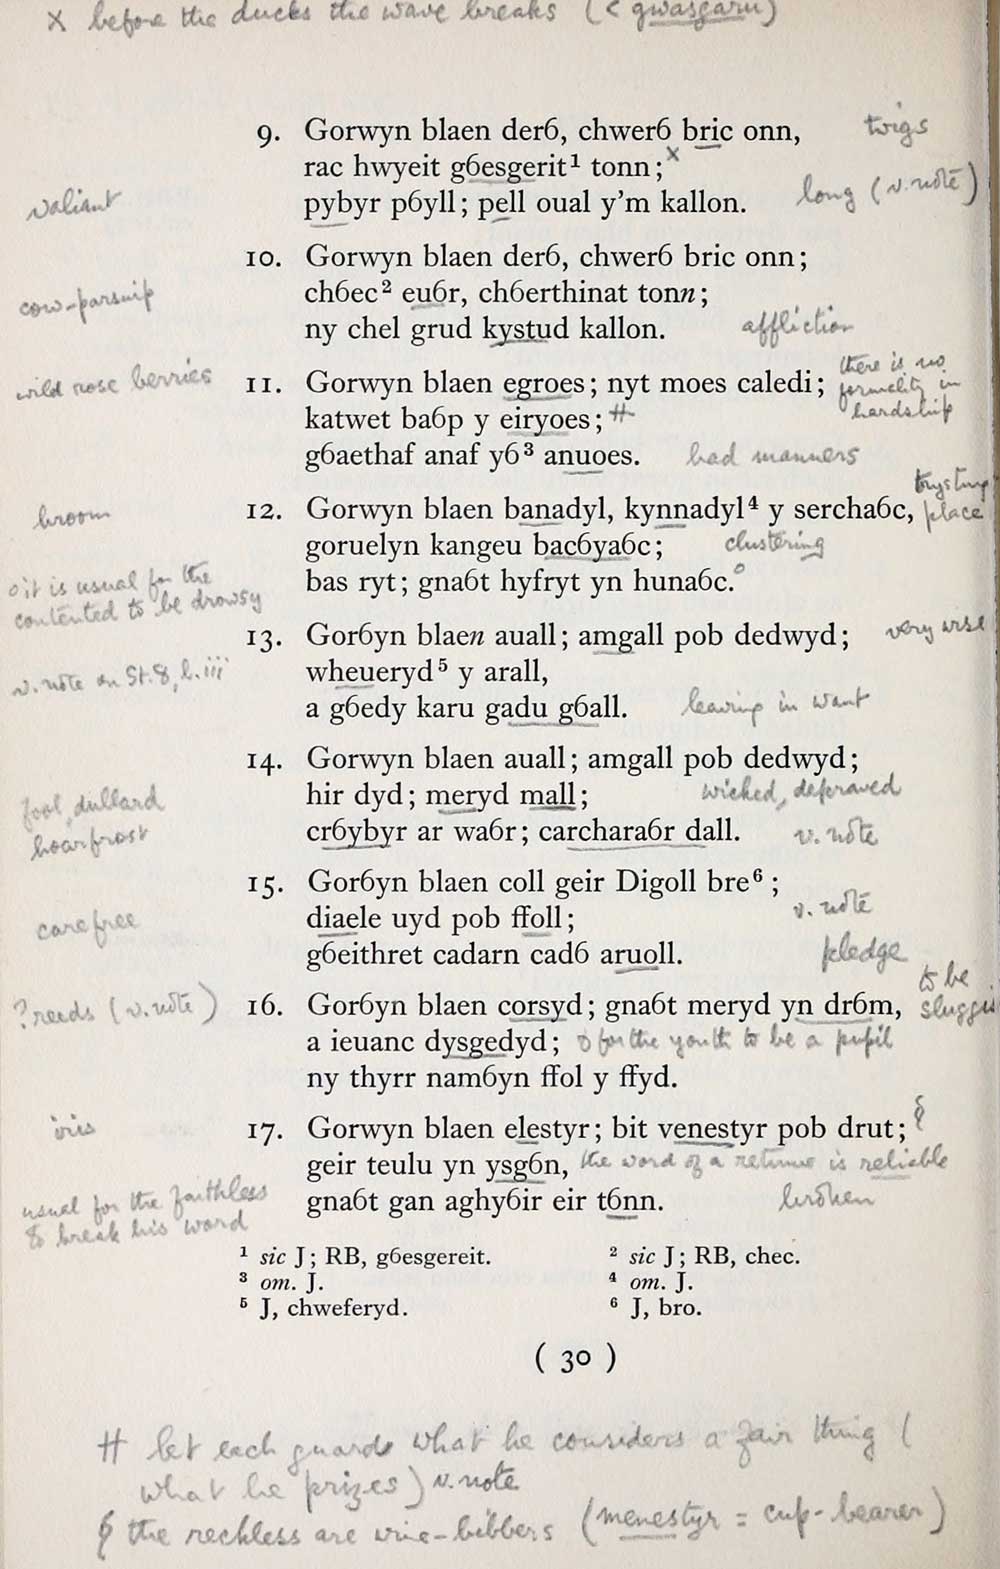 x before the ducks the wave breaks (< gwasgaru)
9. Gorwyn blaen derỽ, chwerỽ bric onn, twigs
rac hwyeit gỽesgerit¹ tonn; x
valiant pybyr pỽyll; pell oual y'm kallon. long (v. note)
10. Gorwyn blaen derỽ, chwerỽ bric onn;
cow-parsnip chỽec² euỽr, chỽerthinat tonn;
ny chel grud kystud kallon. affliction
wild rose berries 11. Gorwyn blaen egroes; nyt moes caledi; there is no formality in hardship
katwet baỽp y eiryoes; #
gỽaethaf anaf yỽ³ anuoes. bad manners
broom 12. Gorwyn blaen banadyl, kynnadyl⁴ y serchaỽc, trysting place
goruelyn kangeu bacỽyaỽc; clustering
o it is usual for the contented to be drowsy bas ryt; gnaỽt hyfryt yn hunaỽc. o
13. Gorỽyn blaen auall; amgall pob dedwyd; very wise
v. note on St. 8, l. iii wheueryd⁵ y arall,
a gỽedy karu gadu gỽall. leaving in want
14. Gorwyn blaen auall; amgall pob dedwyd;
fool, dullard hir dyd; meryd mall; wicked, depraved
hoarfrost crỽybyr ar waỽr; carcharaỽr dall. v. note
15. Gorỽyn blaen coll geir Digoll bre⁶;
carefree diaele uyd pob ffoll; v. note
gỽeithret cadarn cadỽ aruoll. pledge
? reeds (v. note) 16. Gorỽyn blaen corsyd; gnaỽt meryd yn drỽm, to be
a ieuanc dysgedyd; & for the youth to be a pupil
ny thyrr namỽyn ffol y ffyd.
iris 17. Gorwyn blaen elestyr; bit venestyr pob drut; §
geir teulu yn ysgỽn, the word of a retinue is reliable
usual for the faithless to break his word gnaỽt gan aghyỽir eir tỽnn. broken
¹ sic J; RB, gỽesgereit. ² sic J; RB, chec.
³ om. J. ⁴ om. J.
⁵ J, chweferyd. ⁶ J, bro.
( 30 )
# let each guard what he considers a fair thing (
what he prizes) v. note
§ the reckless are wine-bibbers (menestyr = cup-bearer)